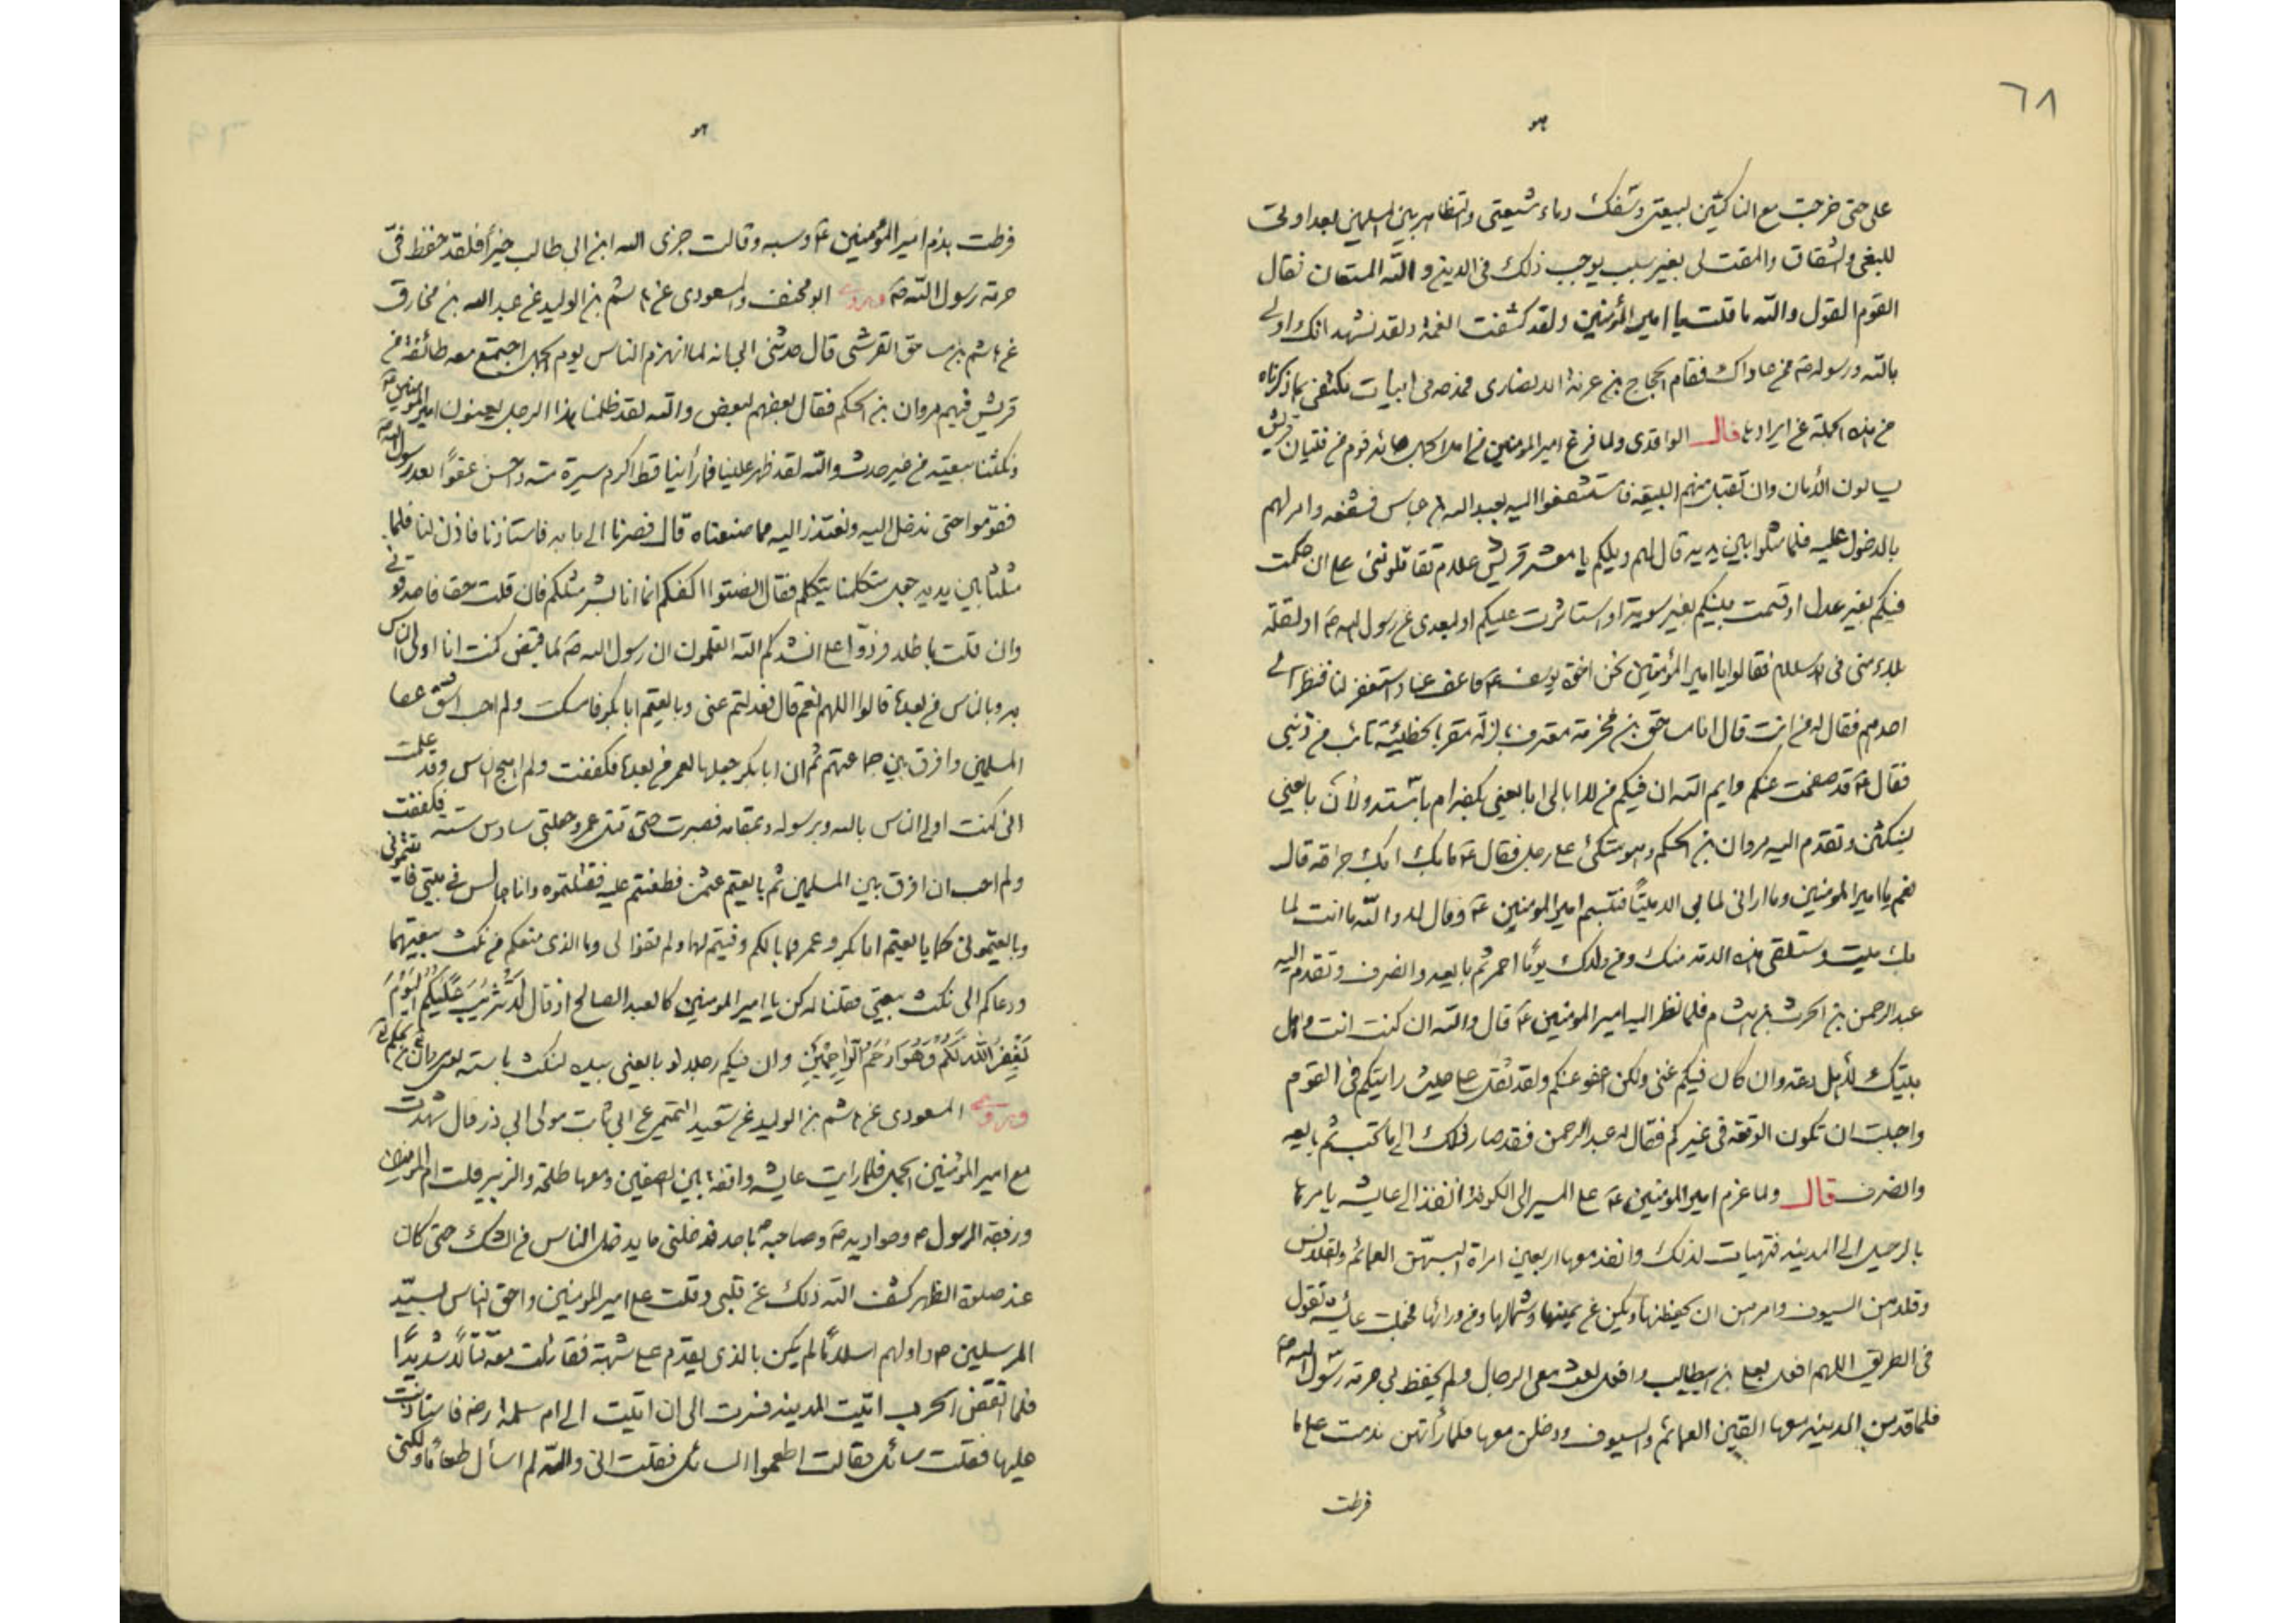 ٦٨
هو
على حتى خرجت مع الناكثين لبيعتى وسفك دماء شيعتى والتظاهر بين المسلمين بعداوتى
للبغى والشقاق والمقت لى بغير سبب يوجب ذلك فى الدين والله المستعان فقال
القوم القول والله ما قلت يا امير المؤمنين ولقد كشفت الغمة ولقد نشهد انك اولى
بالله ورسوله ص من عاداك فقام الحجاج بن عزية الانصارى فمدحه فى ابيات نكتفى بما ذكرناه
من هذه الجملة عن ايرادها قال الواقدى ولما فرغ امير المؤمنين من اهل الجمل جائه قوم من فتيان قريش
يسالون الأمان وان تقبل منهم البيعة فاستشفعوا اليه بعبد الله بن عباس فشفعه وامر لهم
بالدخول عليه فلما مثلوا بين يديه قال لهم ويلكم يا معشر قريش علام تقاتلونى على ان حكمت
فيكم بغير عدل او قسمت بينكم بغير سوية او استاثرت عليكم او لبعدى عن رسول الله ص او لقلة
بلاء منى فى الاسلام فقالوا يا امير المؤمنين نحن اخوة يوسف ع فاعف عنا واستغفر لنا فنظر الى
احدهم فقال له من انت قال انا مساحق بن مخرمة معترف بالزلة مقر بالخطيئة تائب من ذنبى
فقال ع قد صفحت عنكم وايم الله ان فيكم من لا ابالى ابايعنى بكفه ام باسته ولأن بايعنى
لينكثن وتقدم اليه مروان بن الحكم وهو متكئ على رجل فقال ع ما بك ابك جراحة قال
نعم يا امير المؤمنين وما ارانى لما بى الا ميتا فتبسم امير المؤمنين ع وقال لا والله ما انت لما
بك ميت وستلقى هذه الامة منك ومن ولدك يوما احمر ثم بايعه وانصرف وتقدم اليه
عبد الرحمن بن الحرث بن هشام فلما نظر اليه امير المؤمنين ع قال والله ان كنت انت واهل
بيتك لأهل دعة وان كان فيكم غنى ولكن اعفو عنكم ولقد ثقل على حيث رايتكم فى القوم
واحببت ان تكون الوقعة فى غيركم فقال له عبد الرحمن فقد صار ذلك الى ما كتب ثم بايعه
وانصرف قال ولما عزم امير المؤمنين ع على المسير الى الكوفة انفذ الى عايشه يامرها
بالرحيل الى المدينه فتهيات لذلك وانفذ معها اربعين امراة البسهن العمائم والقلانس
وقلدهن السيوف وامرهن ان يحفظنها ويكن عن يمينها وشمالها ومن ورائها فجعلت عائشة تقول
فى الطريق اللهم افعل بعلى بن ابيطالب وافعل بعث معى الرجال ولم يحفظ بى حرمة رسول الله ص
فلما قدمن المدينه معها القين العمائم والسيوف ودخلن معها فلما رأتهن ندمت على ما
فرطت
هو
فرطت بذم امير المؤمنين ع وسبه وقالت جزى الله ابن ابى طالب خيرا فلقد حفظ فىّ
حرمة رسول الله ص وروى ابو مخنف والمسعودى عن هاشم بن الوليد عن عبد الله بن مخارق
عن هاشم بن مساحق القرشى قال حدثنى ابى انه لما انهزم الناس يوم الجمل اجتمع معه طائفة من
قريش فيهم مروان بن الحكم فقال بعضهم لبعض والله لقد ظلمنا هذا الرجل يعنون امير المؤمنين ع
ونكثنا بيعته من غير حدث والله لقد ظهر علينا فما رأينا قط اكرم سيرة منه ولا احسن عفوا بعد رسول الله ص
فقوموا حتى ندخل اليه ونعتذر اليه مما صنعناه قال فصرنا الى بابه فاستاذنا فاذن لنا فلما
مثلنا بين يديه جعل متكلمنا يتكلم فقال انصتوا اكفكم انما انا بشر مثلكم فان قلت حقا فاصدقونى
وان قلت باطلا فردوا على انشدكم الله اتعلمون ان رسول الله ص لما قبض كنت انا اولى الناس
به وبالناس من بعده قالوا اللهم نعم قال فعدلتم عنى وبايعتم ابا بكر فامسكت ولم احب اشق عصا
المسلمين وافرق بين جماعتهم ثم ان ابا بكر جعلها لعمر من بعده فكففت ولم اهج الناس وقد علمت
انى كنت اولى الناس بالله وبرسوله وبمقامه فصبرت حتى قتل عمر وجعلنى سادس ستة فكففت
ولم احب ان افرق بين المسلمين ثم بايعتم عثمن فطعنتم عليه فقتلتموه وانا جالس فى بيتى فاتيتمونى
وبايعتمونى كما بايعتم ابا بكر وعمر فما بالكم وفيتم لهما ولم تفوا لى وما الذى منعكم من نكث بيعتهما
ودعاكم الى نكث بيعتى فقلنا له كن يا امير المومنين كالعبد الصالح اذ قال لَا تَثْرِيبَ عَلَيْكُمُ الْيَوْمَ
يَغْفِرُ اللهُ لَكُمْ وَهُوَ اَرْحَمُ الرَّاحِمِينَ وان فيكم رجلا لو بايعنى بيده لنكث باسته يعنى مروان بن الحكم
وروى المسعودى عن هاشم بن الوليد عن سعيد التميمى عن ابى ثابت مولى ابى ذر قال شهدت
مع امير المؤمنين الجمل فلما رايت عايشه واقفة بين الصفين ومعها طلحة والزبير قلت ام المؤمنين
وزوجة الرسول ص وحواريه ص وصاحبه باحد فدخلنى ما يدخل الناس من الشك حتى كان
عند صلوة الظهر كشف الله ذلك عن قلبى وقلت على امير المومنين واحق الناس بسيد
المرسلين ص واولهم اسلاما لم يكن بالذى يقدم على شبهة فقاتلت معه قتالا شديدا
فلما انقضى الحرب اتيت المدينه فسرت الى ان اتيت الى ام سلمة رضه فاستاذنت
عليها فقلت سائل فقالت اطعموا السائل فقلت انى والله لم اسأل طعاما ولكنى